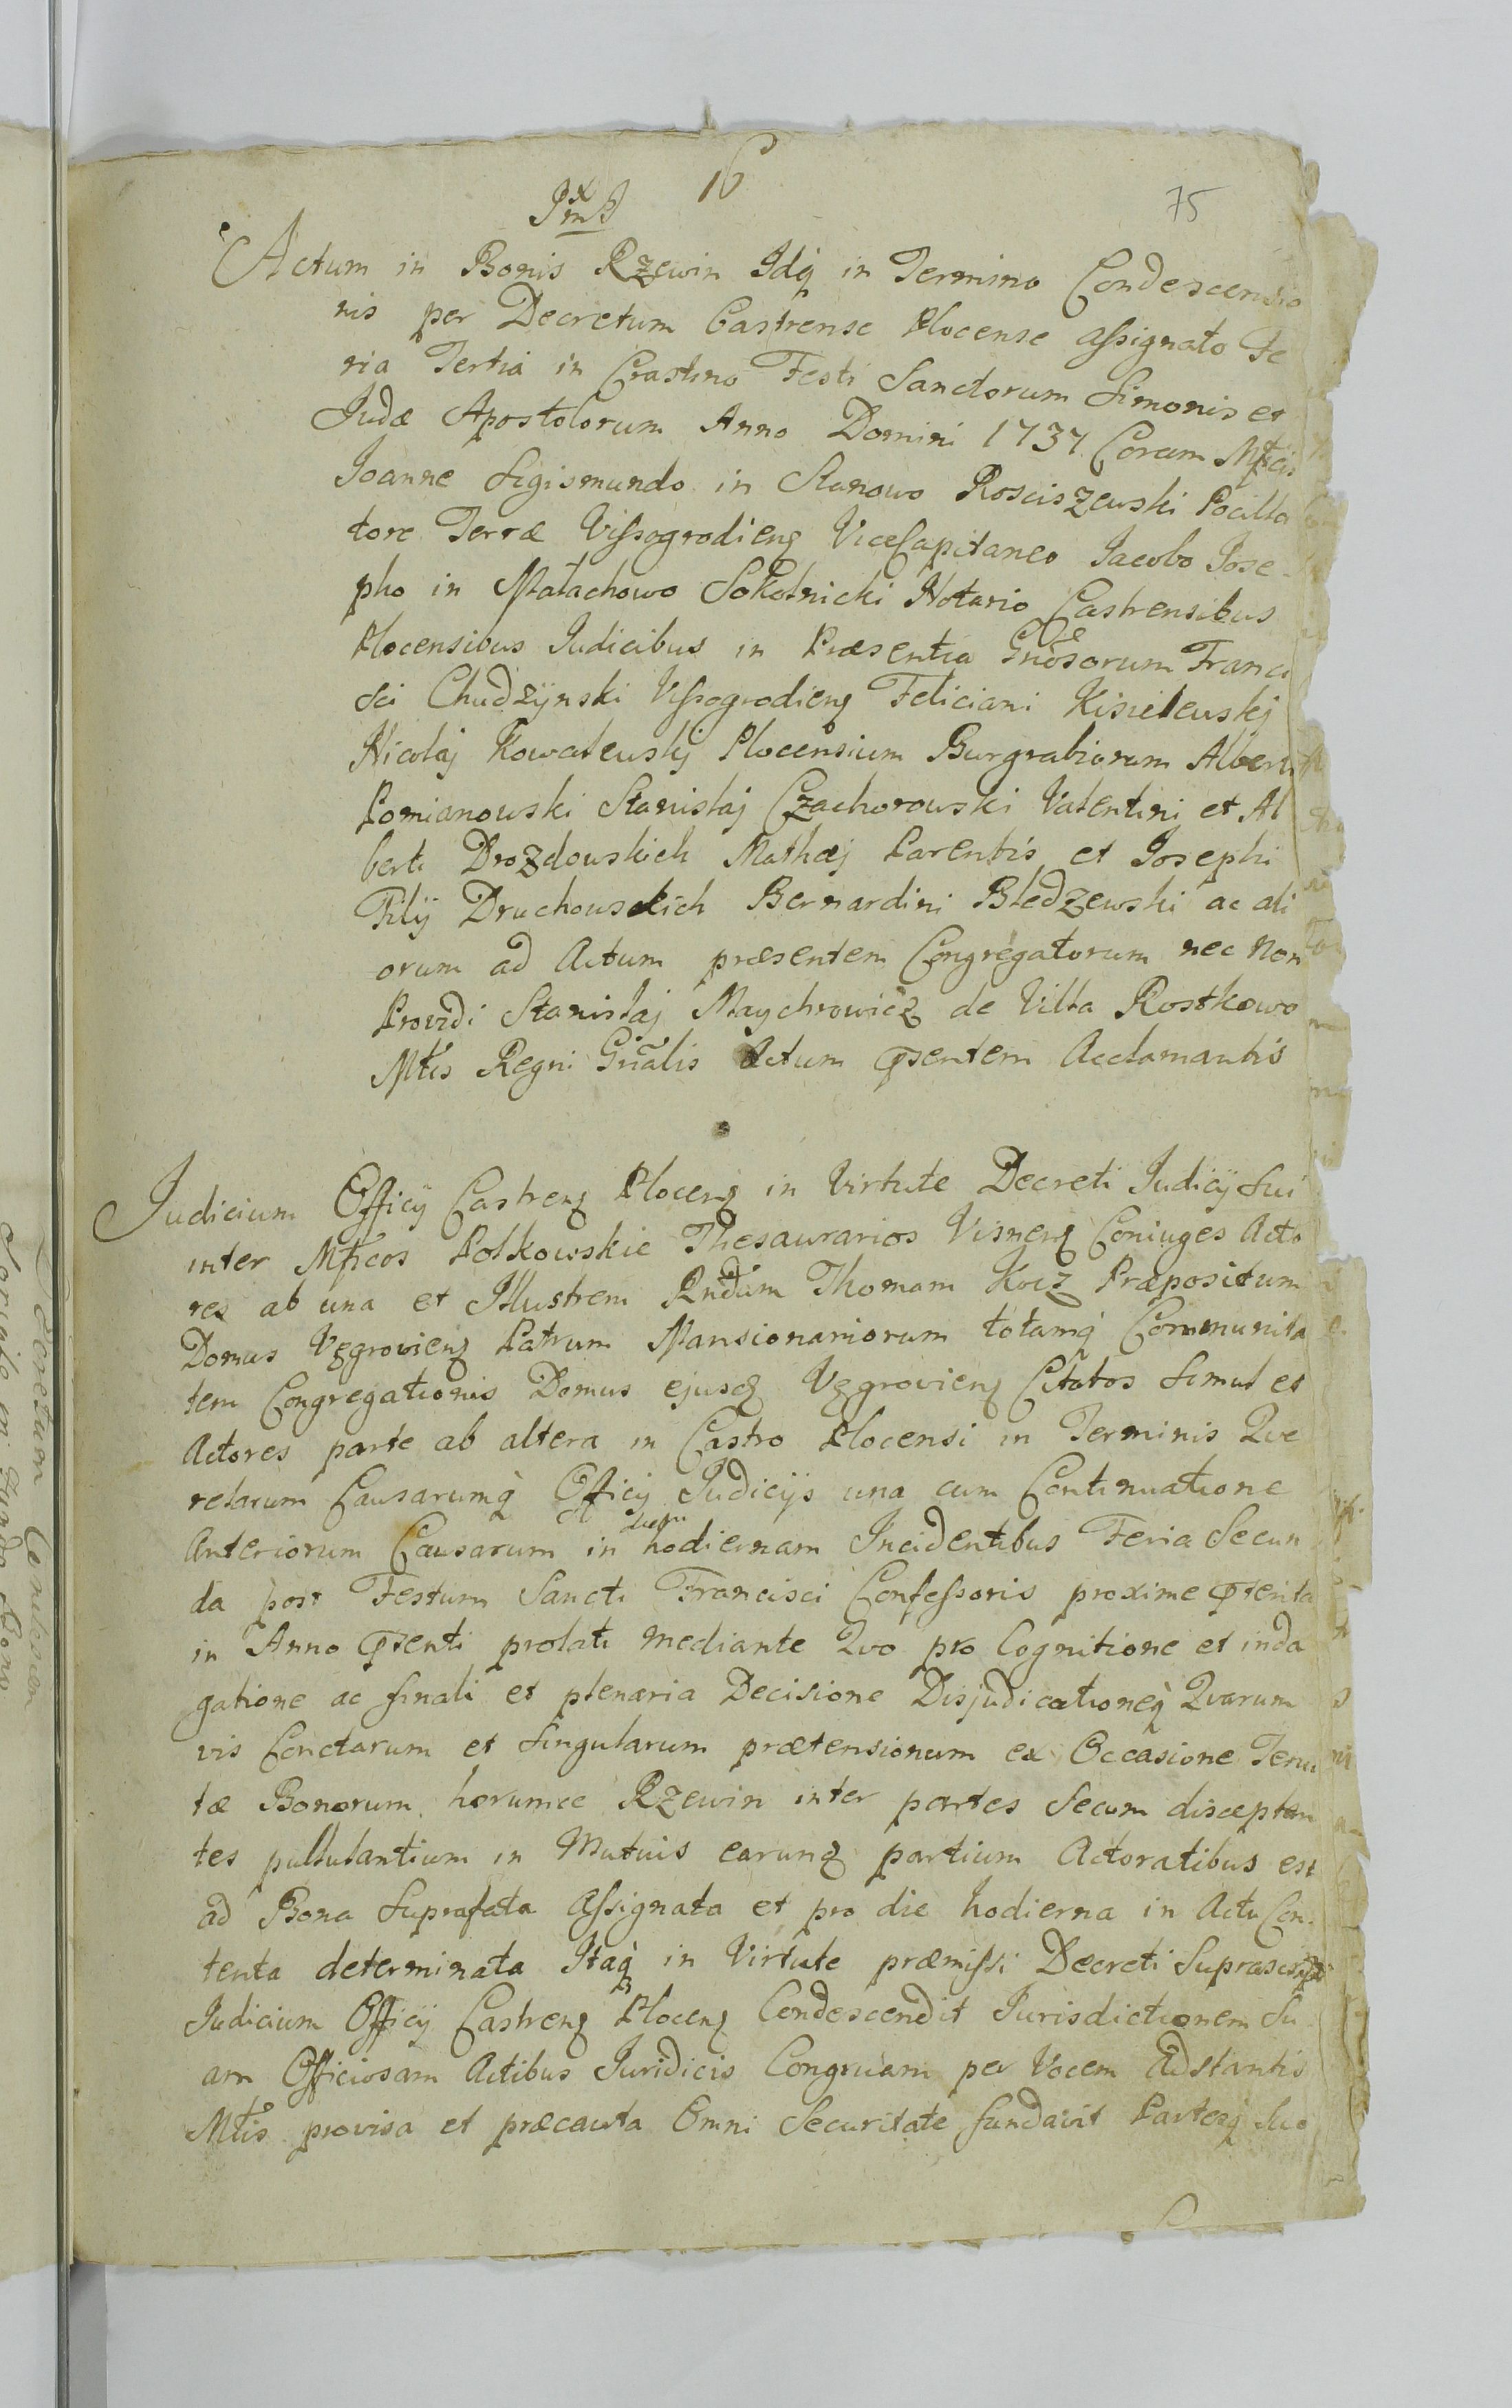 16
75
Actum in Bonis Rzewin Idq in Termino Condescensio
nis per Decretum Castrense Plocense assignato Fe
ria Tertia in Crastino Festi Sanctorum Simonis et
Judæ Apostolorum Anno Domini 1737 Coram Mfcis
Joanne Sigismundo in Stanowo Rosciszewski Pocilla
tore Terræ Vissogrodienz ViceCapitaneo Jacobo Jose-
pho in Małachowo Sokolnicki Notario Castrensibus
Plocensibus Judicibus in Præsentia Gnosorum Franci
sci Chudzÿnski Vissogrodienz Feliciani Kisielewskj
Nicolaj Kowalewskj Plocensium Burgrabiorum Alberti
Pomianowski Stanislaj Czachorowski Valentini et Al
berti Drozdowskich Mathæj Parentis et Josephi
Filÿ Druchowskich Bernardini Bledzewski ac ali
orum ad Actum præsentem Congregatorum nec non
Providi Stanislaj Maychrowicz de Villa Rostkowo
Mtis Regni Gnalis Actum psentem Acclamantis
Judicium Officÿ Castrenz Plocenz in Virtute Decreti Judicÿ Sui
inter Mfcos Polkowskie Thesaurarios Visnenz Coniuges Acto
res ab una et Illustrem Rndum Thomam Kocz Præpositum
Domus Vzgrovienz Patrum Mansionariorum totamq Communita
tem Congregationis Domus ejusdz Vzgrovienz Citatos Simul et
Actores parte ab altera in Castro Plocensi in Terminis Qve
relarum Causarumq Officÿ Judicÿs una cum Continuatione
diem
Anteriorum Causarum in hodiernam Incidentibus Feria Secun
da post Festum Sancti Francisci Confessoris proxime pterita
in Anno psenti prolati mediante Qvo pro Cognitione et inda
gatione ac finali et plenaria Decisione Disjudicationeq Qvarum
vis Cunctarum et Singularum prætensionum ex Occasione Tenu
tæ Bonorum horumce Rzewin inter partes Secum disceptan
tes pullulantium in Mutuis earunz partium Actoratibus est
ad Bona Suprafata Assignata et pro die hodierna in Actu Con-
tenta determinata Itaq in Virtute præmissi Decreti Suprascripti
Judicium Officÿ Castrenz Plocenz Condescendit Jurisdictionem Su
am Officiosam Actibus Juridicis Congruam per Vocem Adstantis
Mtis provisa et præcauta Omni Securitate fundavit Partesq Suo